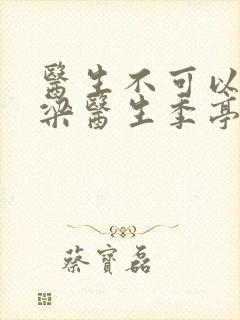 醫生不可以
梁醫生季亭
蔡寶磊